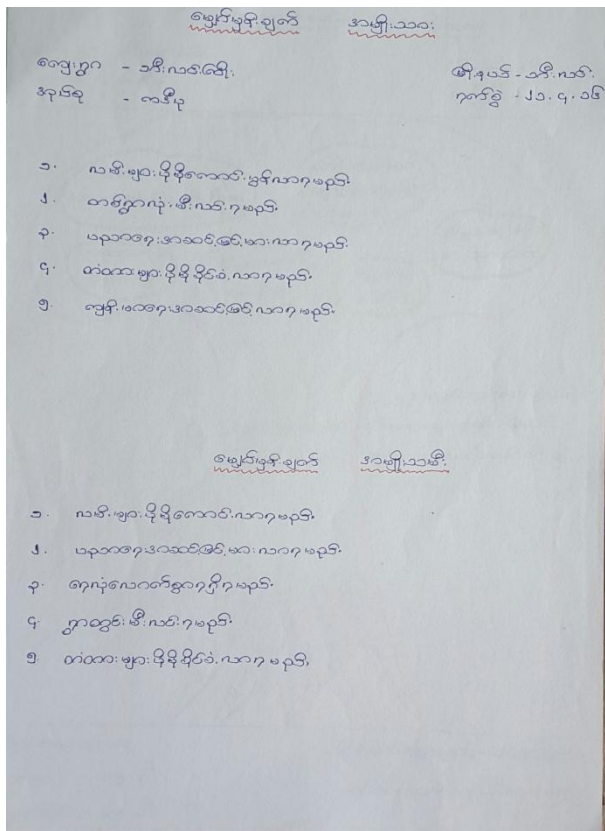 မျှော်မှန်းချက် အမျိုးသား
ကျေးရွာ - သီးလင်းကြိုး မြို့နယ် - သီးလင်း
အုပ်စု - ကဒီမု ရက်စွဲ - ၂၁.၄.၁၆
၁. လမ်းများပိုမိုကောင်းမွန်လာရမည်။
၂. တစ်ရွာလုံးမီးလင်းရမည်။
၃. ပညာရေးအဆင့်မြင့်မားလာရမည်။
၄. တံတားများပိုမိုခိုင်ခံ့လာရမည်။
၅. ကျန်းမာရေးအဆင့်မြင့်လာရမည်။
မျှော်မှန်းချက် အမျိုးသမီး
၁. လမ်းများပိုမိုကောင်းလာရမည်။
၂. ပညာရေးအဆင့်မြင့်မားလာရမည်။
၃. ရေလုံလောက်စွာရရှိရမည်။
၄. ရွာတွင်းမီးလင်းရမည်။
၅. တံတားများပိုမိုခိုင်ခံ့လာရမည်။